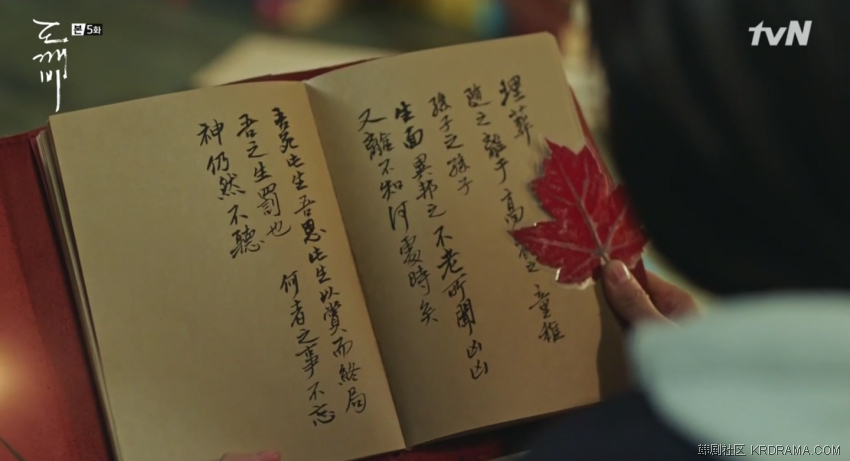 도깨비
본 5화
tvN
埋葬
隨之離于高之童稚
孫子之孫子
生面異邦之不老所聞凶凶
又離不知何處時矣
此生吾思此生以賞而終局
吾之生罰也 何者之事不忘
神仍然不聽
韩剧社区 KRDRAMA.COM